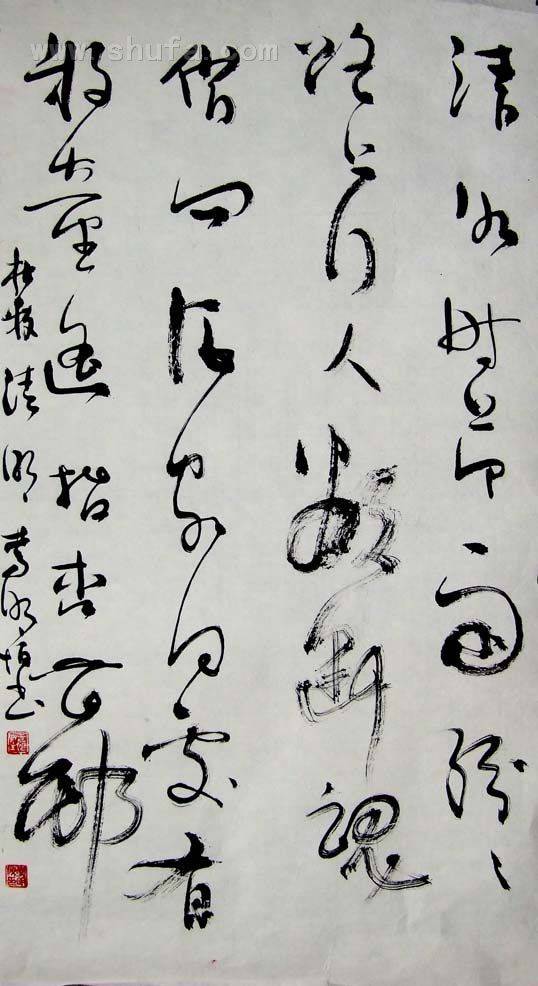 清明时节雨纷纷
路上行人欲断魂
借问酒家何处有
牧童遥指杏花邨
杜牧清明
www.shufa.com